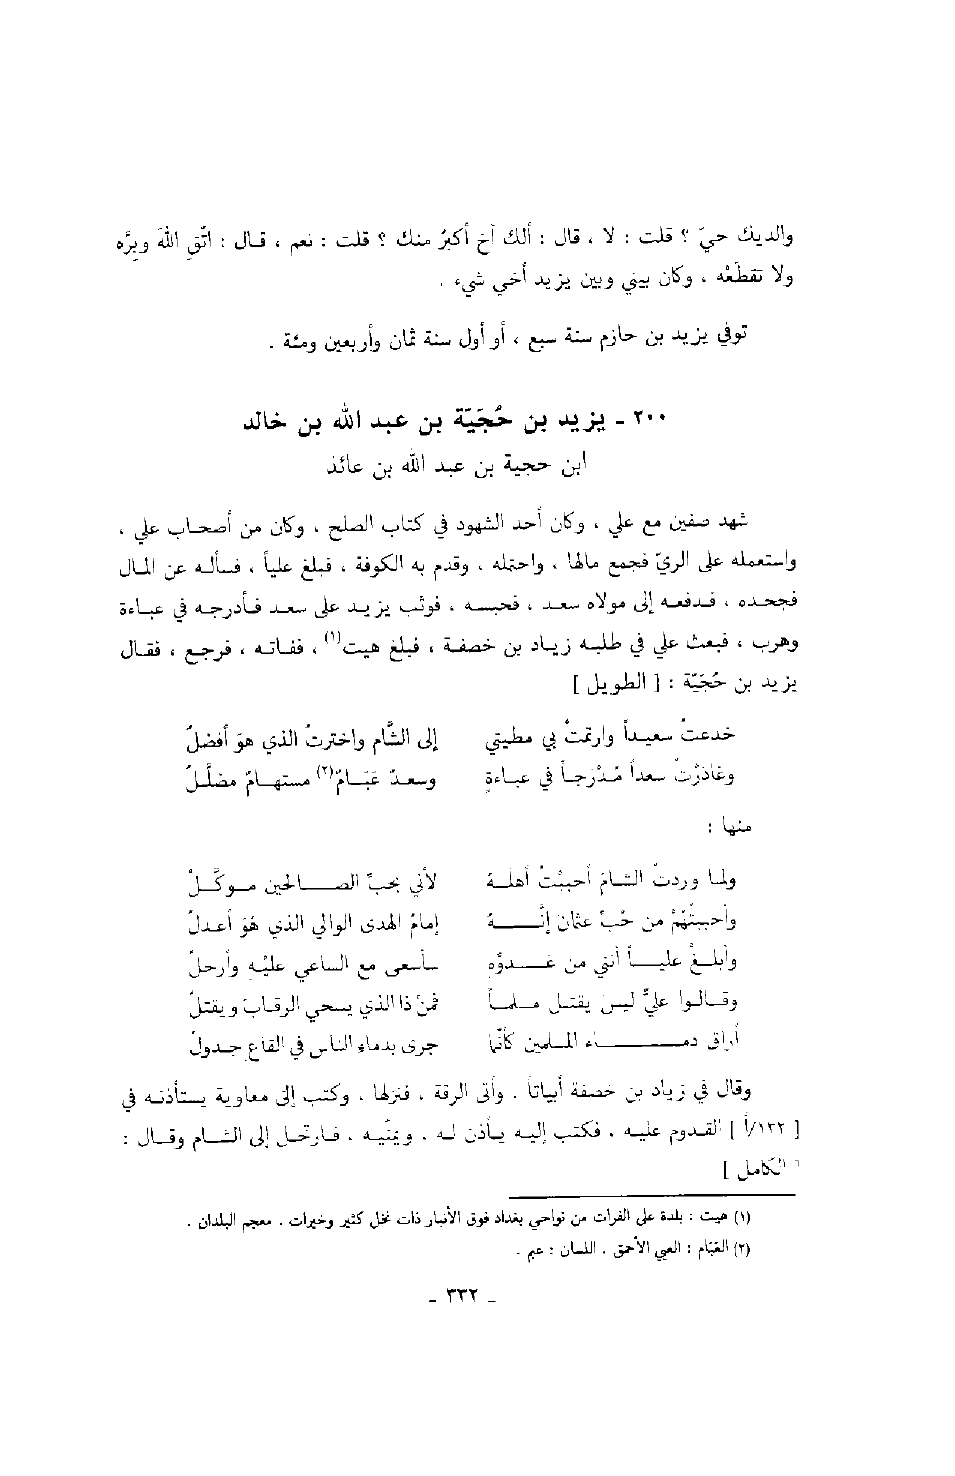 والديك حيّ ؟ قلت : لا ، قال : ألك أخ أكبرُ منك ؟ قلت : نعم ، قال : اتّقِ اللهَ وبِرَّه
ولا تقطَعْه ، وكان بيني وبين يزيد أخي شيء .
توفي يزيد بن حازم سنة سبع ، أو أول سنة ثمان وأربعين ومئة .
٢٠٠ ـ يزيد بن حُجَيّة بن عبد الله بن خالد
ابن حجية بن عبد الله بن عائذ
شهد صفين مع علي ، وكان أحد الشهود في كتاب الصلح ، وكان من أصحاب علي ،
واستعمله على الريّ فجمع مالها ، واحتمله ، وقدم به الكوفة ، فبلغ علياً ، فسأله عن المال
فجحده ، فدفعه إلى مولاه سعد ، فحبسه ، فوثب يزيد على سعد فأدرجه في عباءة
وهرب ، فبعث علي في طلبه زياد بن خصفة ، فبلغ هيت(١) ، ففاته ، فرجع ، فقال
يزيد بن حُجَيّة : [ الطويل ]
خدعتُ سعيداً وارتمتْ بي مطيتي إلى الشَّام واخترتُ الذي هوَ أفضلُ
وغادَرْتُ سعداً مُدْرَجاً في عباءةٍ وسعدٌ عَبَامٌ(٢) مستهامٌ مضلَّلُ
منها :
ولما وردتُ الشامَ أحببْتُ أهلهُ لأني بحبِّ الصالحين موكَّلُ
وأحببتُهُمْ من حُبِّ عثمانَ إنَّهُ إمامُ الهدى الوالي الذي هُوَ أعدلُ
وأبلغْ علياً أنني من عدوِّه سأسعى مع الساعي عليْهِ وأرحلُ
وقالوا عليٌّ ليسَ يقتلُ مسلماً فمنْ ذا الذي يسحي الرقابَ ويقتلُ
أراقَ دماء المسلمين كأنّما جرى بدماءِ الناسِ في القاعِ جدولُ
وقال في زياد بن خصفة أبياتاً . وأتى الرقة ، فنزلها ، وكتب إلى معاوية يستأذنه في
[ ١٢٢/أ ] القدوم عليه . فكتب إليه يأذن له . ويمنّيه ، فارتحل إلى الشام وقال :
[ الكامل ]
(١) هيت : بلدة على الفرات من نواحي بغداد فوق الأنبار ذات نخل كثير وخيرات . معجم البلدان .
(٢) العَبَام : العيي الأحمق . اللسان : عبم .
ـ ٣٣٢ ـ